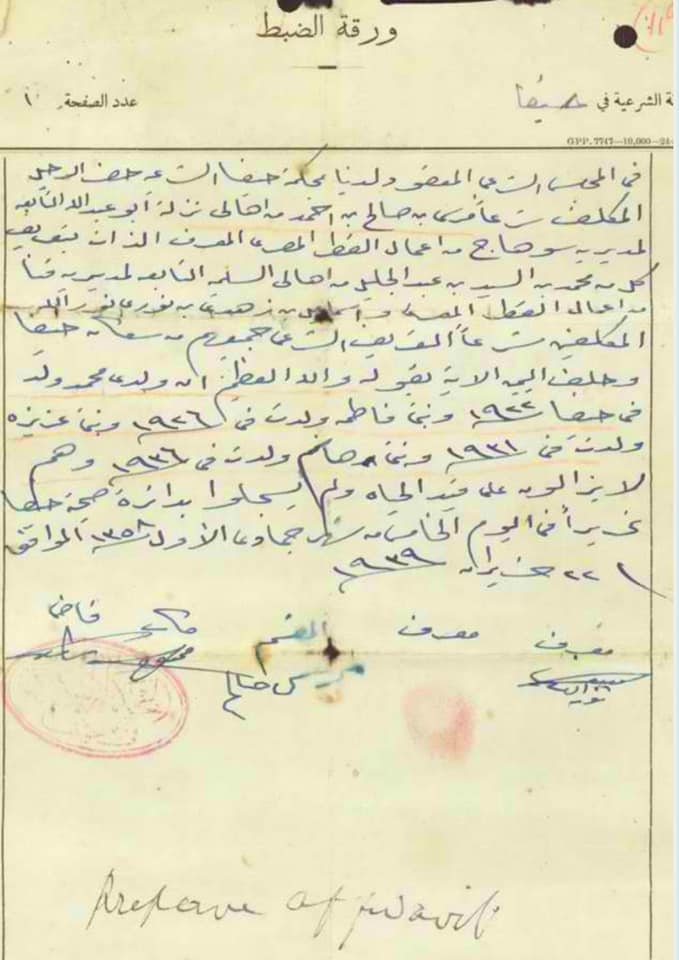 ورقة الضبط
ة الشرعية في حيفا
عدد الصفحة ١
GPP. 7747—10,000—24-
في المجلس الشرعي المعقود لدينا بمحكمة حيفا الشرعية حضر الرجل
المكلف شرعاً مرسي بن صالح بن احمد من اهالي نزلة أبو عبدالله التابعة
لمديرية سوهاج من اعمال القطر المصري المعرف الذات بتعريف
كل من محمد بن السيد بن عبد الجليل من اهالي التابعه لمديرية قنا
من اعمال القطر المصري و بن فوزي
المكلفين شرعاً التعريف الشرعي جميعهم من سكان حيفا
وحلف اليمين الاتية بقوله والله العظيم ان ولدي محمد ولد
في حيفا ١٩٢٢ وبنتي فاطمه ولدت في ١٩٢٦ وبنتي عزيزه
ولدت في ١٩٣١ وبنتي ولدت في ١٩٣٦ وهم
لا يزالون على قيد الحياه ولم يسجلوا بدائرة صحة حيفا
تحريراً في اليوم الخامس من شهر جمادى الأول ١٣٥٨ الموافق
٢٢ حزيران ١٩٣٩
معرف معرف المقسم قاضي
مرسي صالح
Prepare affidavit